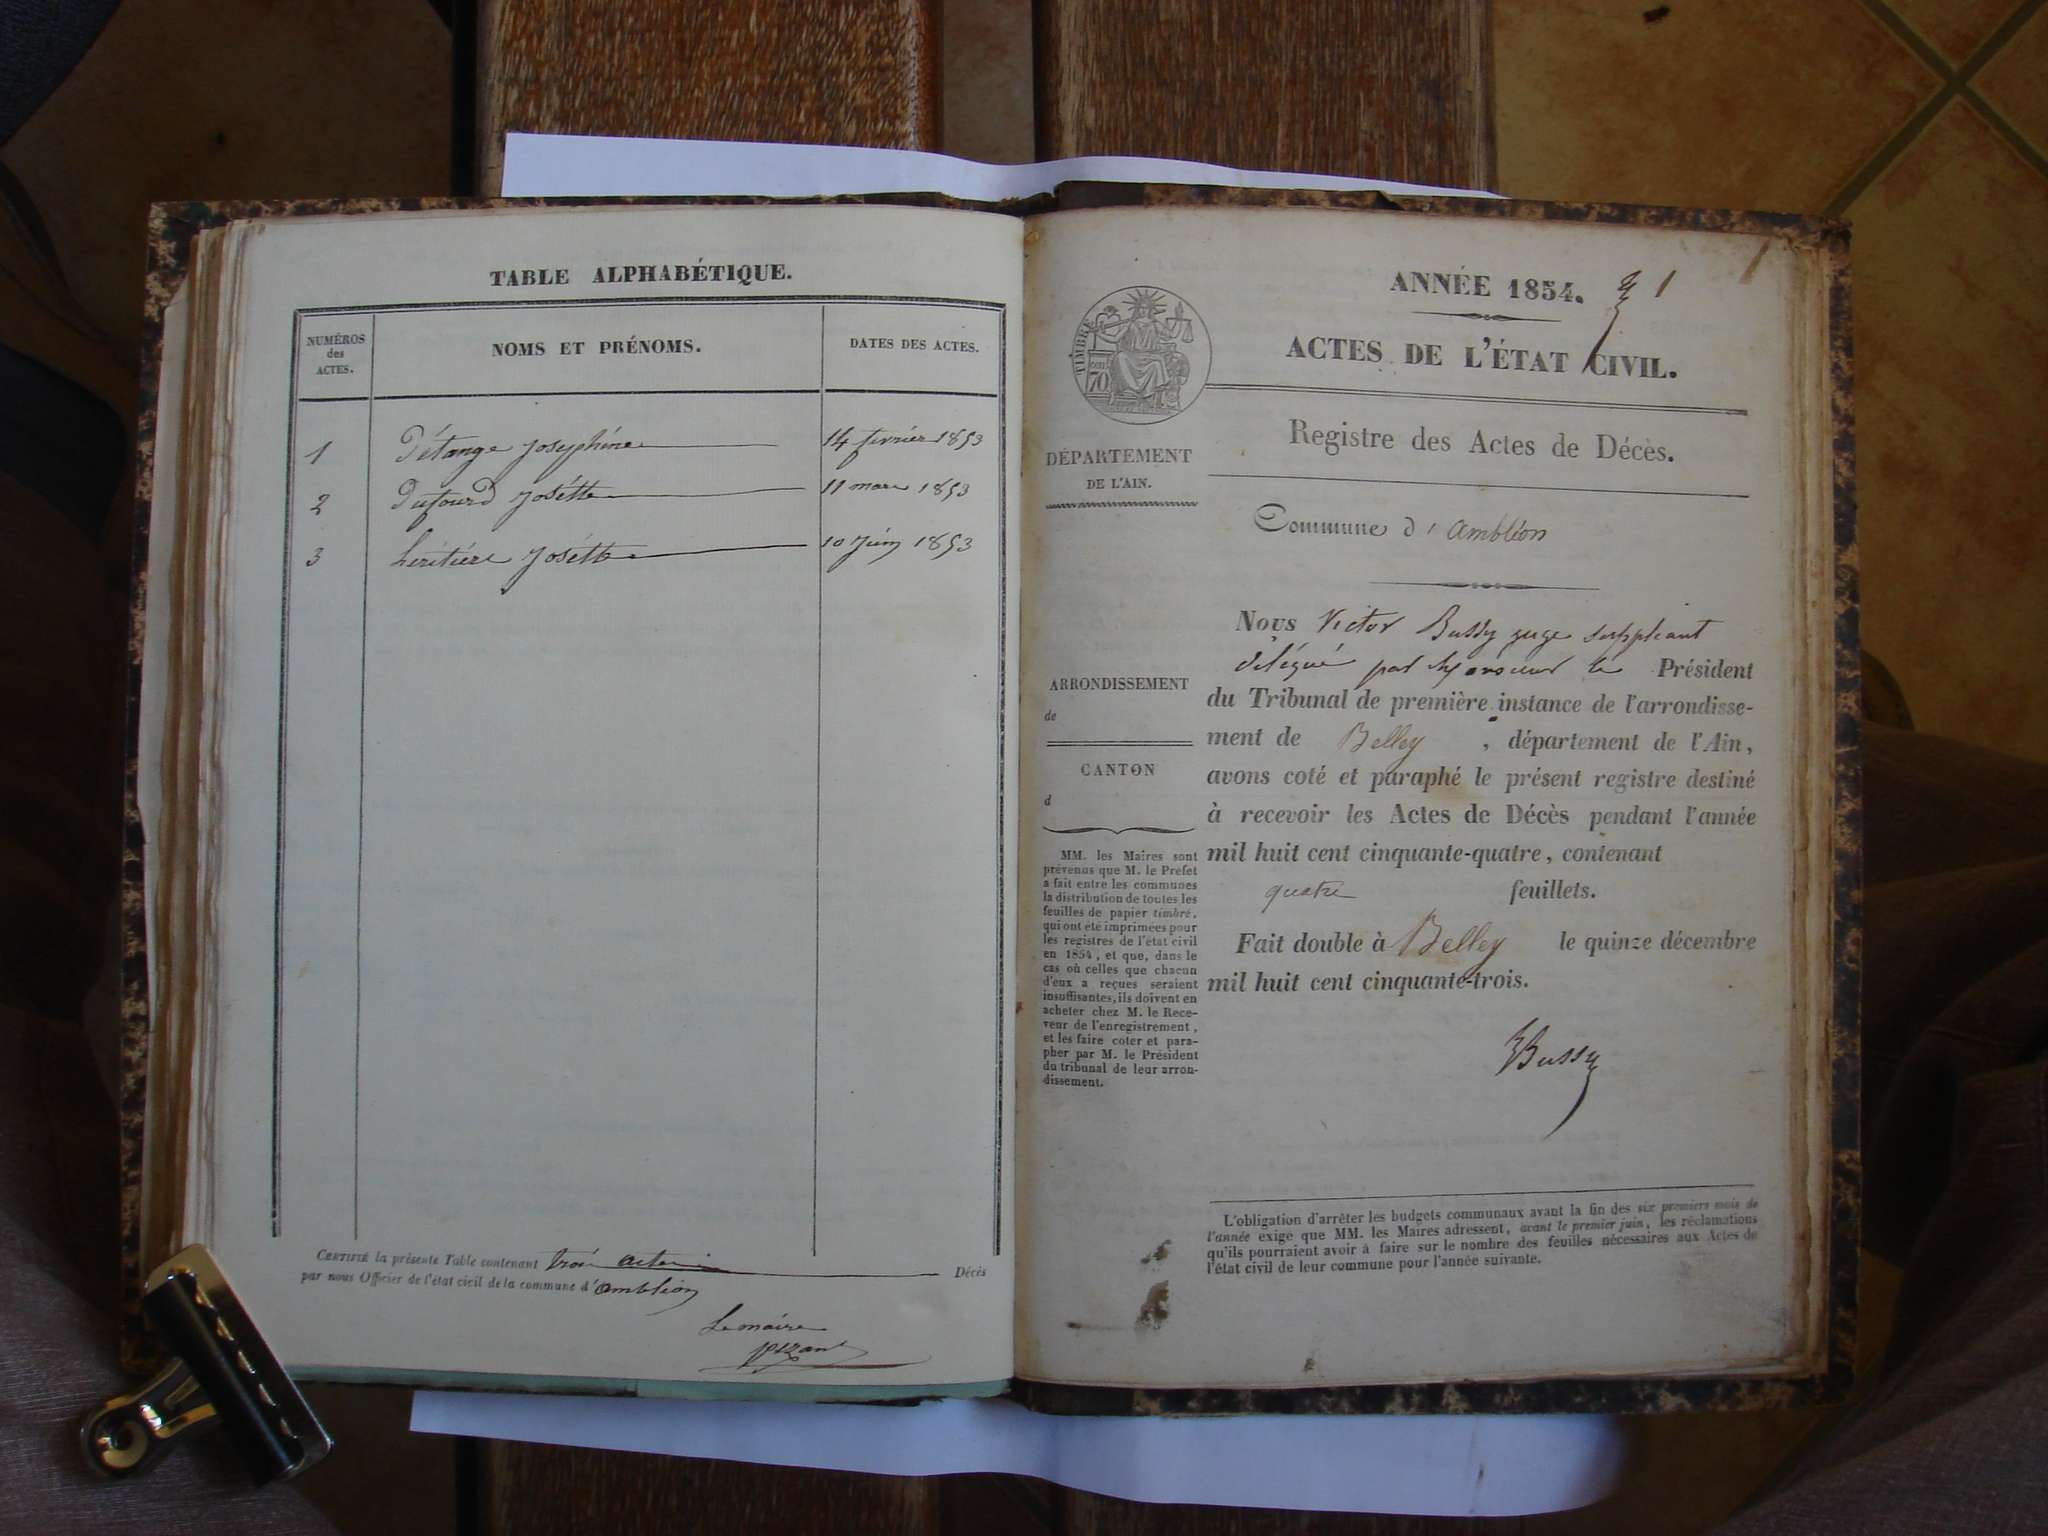 TABLE ALPHABÉTIQUE.
NUMÉROS
des
ACTES.
NOMS ET PRÉNOMS.
DATES DES ACTES.
1 Détange Joséphine 14 février 1853
2 Dufourd Josétte 11 mars 1853
3 Léritière Josétte 10 Juin 1853
CERTIFIÉ la présente Table contenant trois actes Décès
par nous Officier de l'état civil de la commune d'ambléon
Le maire
ANNÉE 1854.
1
1
ACTES DE L'ÉTAT CIVIL.
TIMBRE
70
Registre des Actes de Décès.
DÉPARTEMENT
DE L'AIN.
Commune d'ambléon
ARRONDISSEMENT
de
CANTON
d
MM. les Maires sont
prévenus que M. le Prefet
a fait entre les communes
la distribution de toutes les
feuilles de papier timbré,
qui ont été imprimées pour
les registres de l'état civil
en 1854, et que, dans le
cas où celles que chacun
d'eux a reçues seraient
insuffisantes, ils doivent en
acheter chez M. le Rece-
veur de l'enregistrement,
et les faire coter et para-
pher par M. le Président
du tribunal de leur arron-
dissement.
Nous Victor Bussy juge suppléant
délégué par Monsieur le Président
du Tribunal de première instance de l'arrondisse-
ment de Belley, département de l'Ain,
avons coté et paraphé le présent registre destiné
à recevoir les Actes de Décès pendant l'année
mil huit cent cinquante-quatre, contenant
quatre feuillets.
Fait double à Belley le quinze décembre
mil huit cent cinquante-trois.
VBussy
L'obligation d'arrêter les budgets communaux avant la fin des six premiers mois de
l'année exige que MM. les Maires adressent, avant le premier juin, les réclamations
qu'ils pourraient avoir à faire sur le nombre des feuilles nécessaires aux Actes de
l'état civil de leur commune pour l'année suivante.